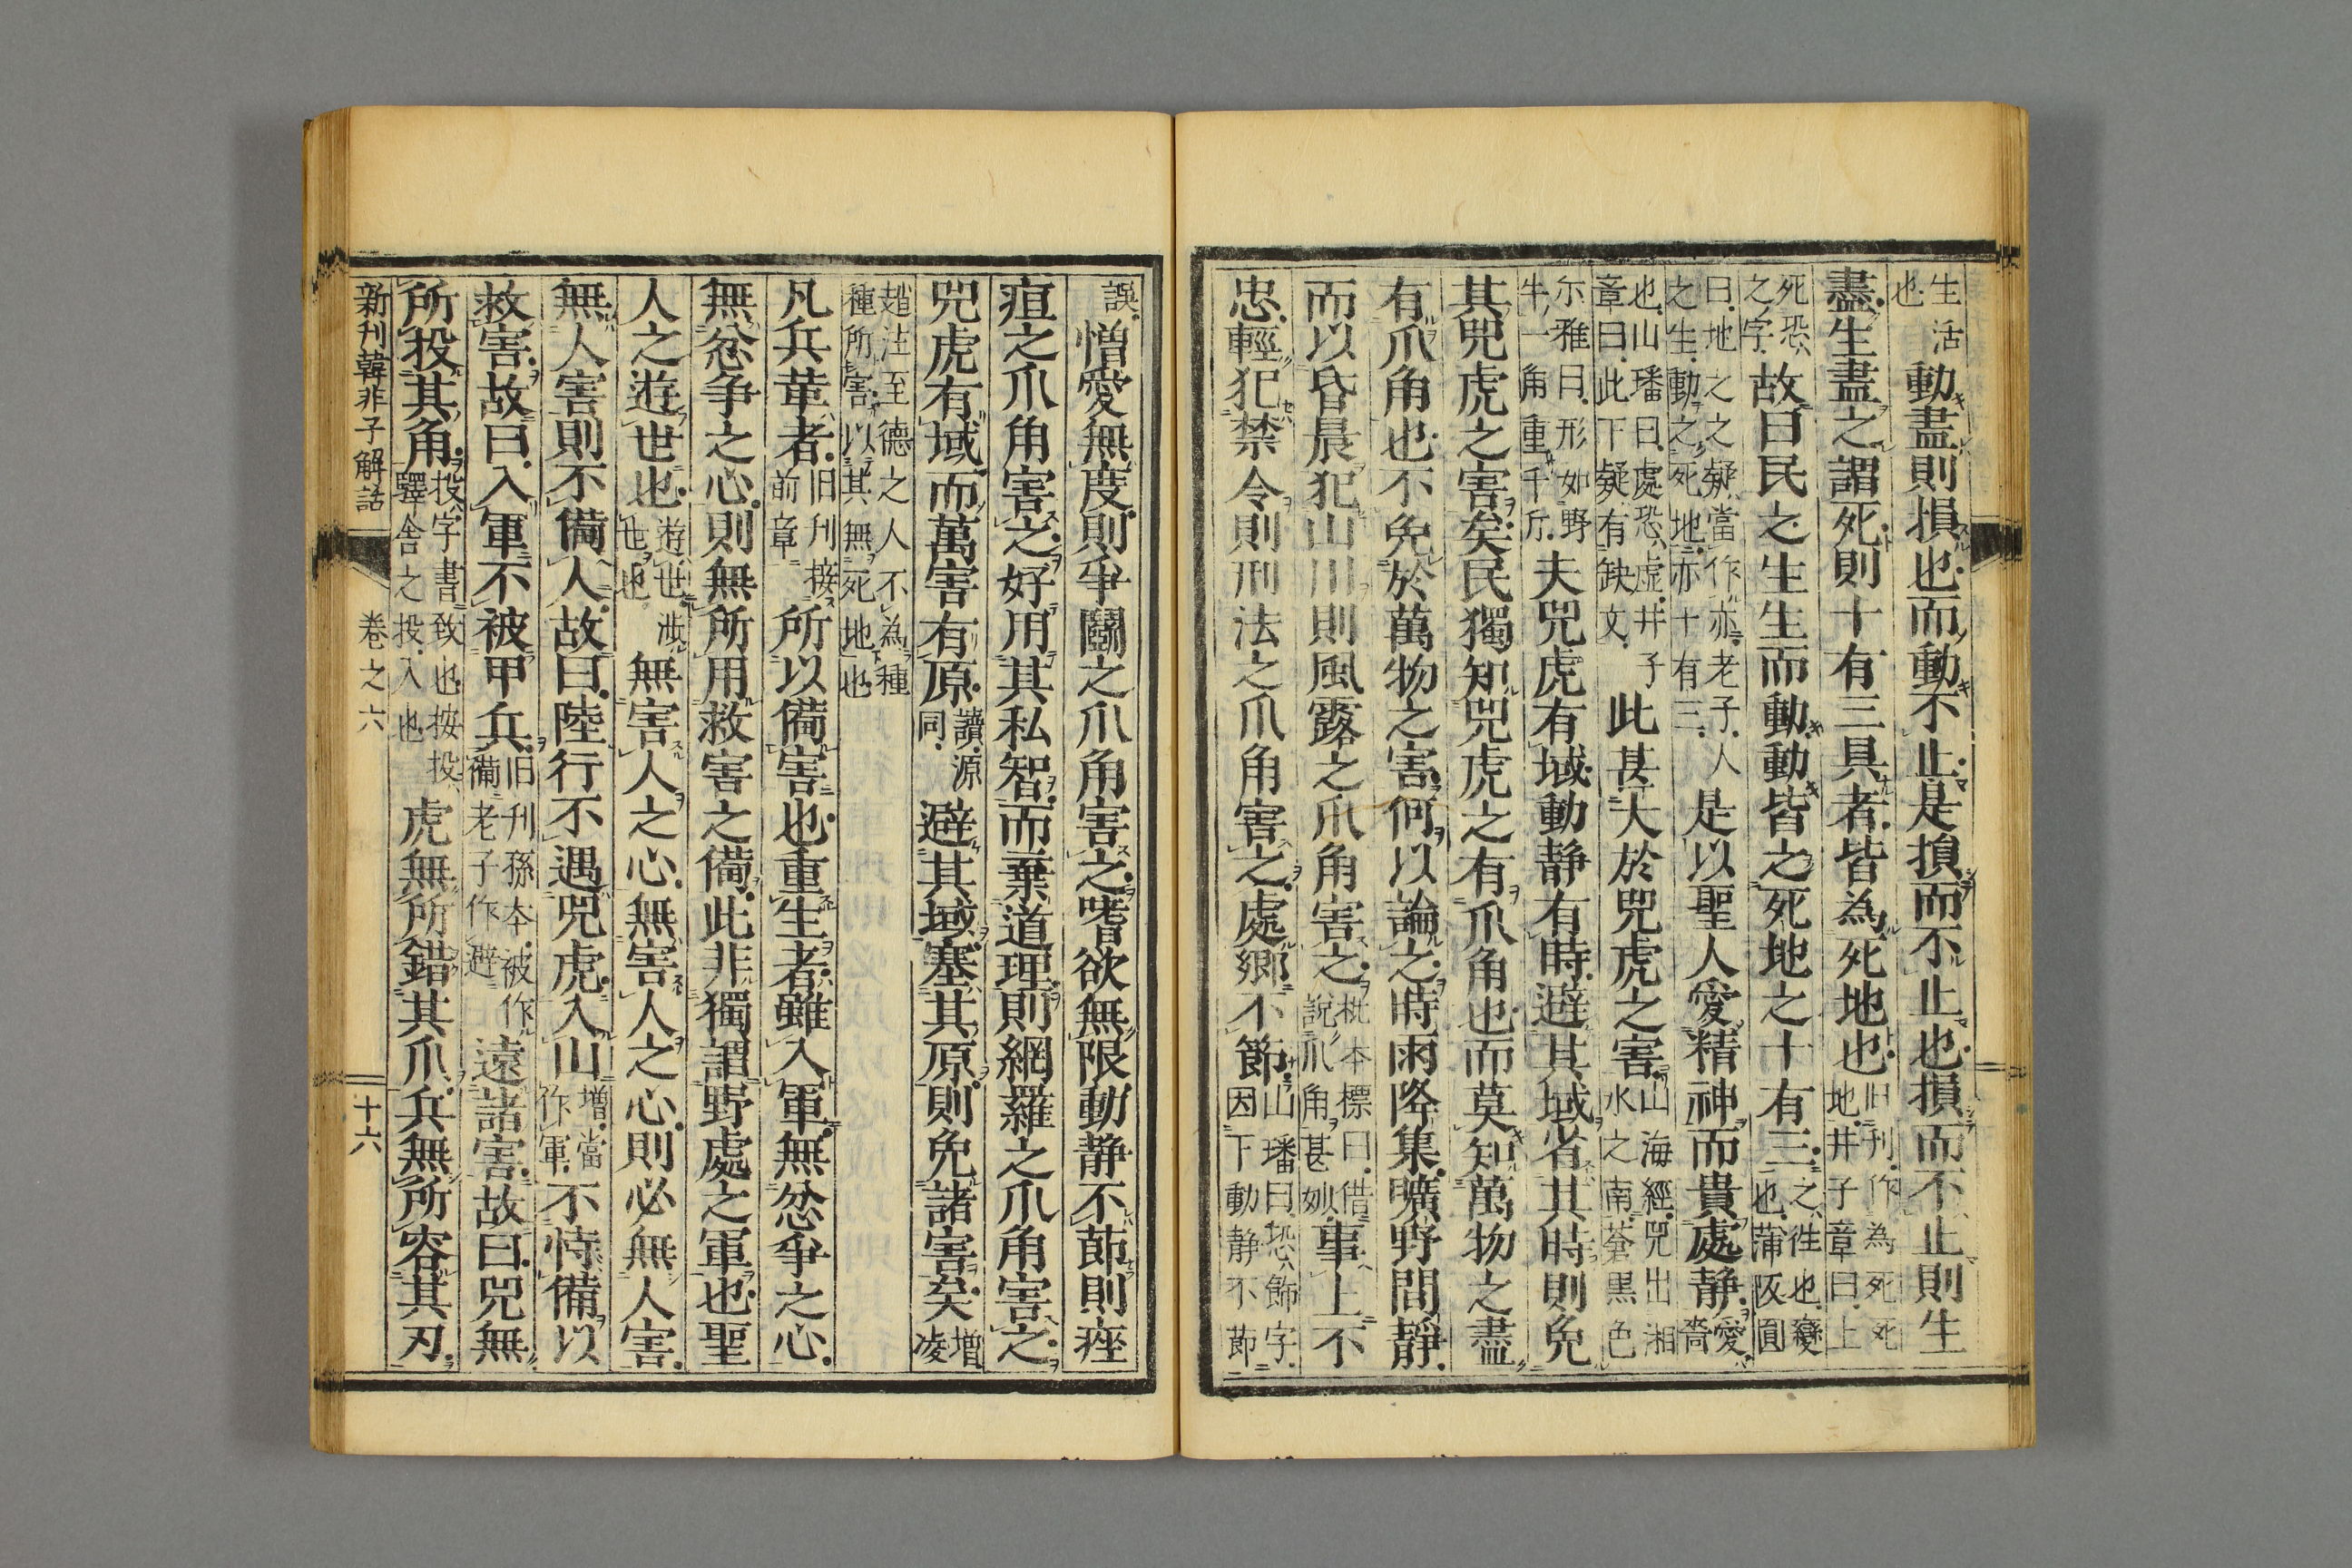 生活也動盡則損也而動不止是損而不止也損而不止則生
盡生盡之謂死則十有三具者皆為死地也旧刋作為死死地井子章曰上
死恐之字故曰民之生生而動動皆之死地之十有三之徃也變也蒲阪圓
曰地之之疑當作亦老子人之生動之死地亦十有三是以聖人愛精神而貴處静愛嗇
也山璠曰處恐虚井子章曰此下疑有缺文此甚大於兕虎之害山海經兕出湘水之南蒼黒色
尓雅曰形如野牛一角重千斤夫兕虎有域動静有時避其域省其時則免
其兕虎之害矣民獨知兕虎之有爪角也而莫知萬物之盡
有爪角也不免於萬物之害何以論之時雨降集曠野間静
而以昏晨犯山川則風露之爪角害之枇本標曰借說爪角甚妙事上不
忠輕犯禁令則刑法之爪角害之處郷不節山璠曰恐飾字因下動静不節
誤憎愛無度則争鬭之爪角害之嗜欲無限動静不節則痤
疽之爪角害之好用其私智而棄道理則網羅之爪角害之
兕虎有域而萬害有原讀源同避其域塞其原則免諸害矣増凌
趙注至德之人不為種種所害以其無死地也
凡兵革者旧刋接前章所以備害也重生者雖入軍無忿争之心
無忿争之心則無所用救害之備此非獨謂野處之軍也聖
人之遊世也遊世渉世也無害人之心無害人之心則必無人害
無人害則不備人故曰陸行不遇兕虎入山増當作軍不恃備以
救害故曰入軍不被甲兵旧刋孫本被作備老子作避遠諸害故曰兕無
所投其角投字書致也按投驛舎之投入也虎無所錯其爪兵無所容其刃
新刊韓非子解詁　卷之六　十六